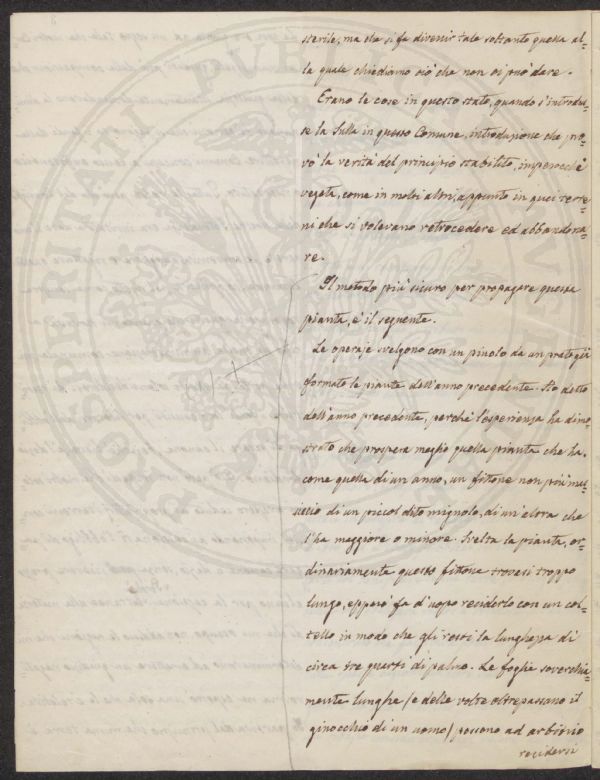 sterile, ma che si fa divenir tale soltanto quella al=
la quale chiediamo ciò che non ci può dare.
Erano le cose in questo stato, quando s'introdu=
se la Sulla in questo Comune, introduzione che pro=
vò la verità del principio stabilito, imperocchè
vegeta, come in molti altri, appunto in quei terre=
ni che si volevano retrocedere ed abbandona=
re.
Il metodo più sicuro per propagare questa
pianta, è il seguente.
Le operaje svelgono con un piuolo da un prato già
formato le piante dell'anno precedente. Ho detto
dell'anno precedente, perchè l'esperienza ha dimo=
strato che prospera meglio quella pianta che ha,
come quella di un anno, un fittone non più mas=
siccio di un piccol dito mignolo, di un'altra che
l'ha maggiore o minore. Svelta la pianta, or=
dinariamente questo fittone trovasi troppo
lungo, epperò fa d'uopo reciderlo con un col=
tello in modo che gli resti la lunghezza di
circa tre quarti di palmo. Le foglie soverchia=
mente lunghe (e delle volte oltrepassano il
ginocchio di un uomo) possono ad arbitrio
recidersi
PROSPERITATI PVBLICAE